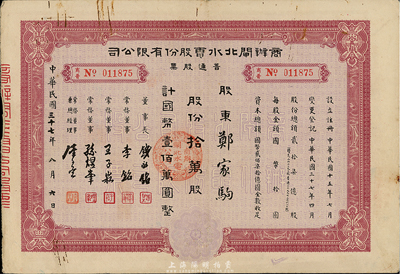 司公限有份股電水北閘辦商
票股通普
No 011875
No 011875
設立註冊 中華民國十五年七月
變更登記 中華民國三十七年四月
股份總額貳拾柒億股
每股金額國幣拾圓
資本總額國幣貳佰柒拾億圓全數收足
股東鄭家駒
股份拾萬股
計國幣壹佰萬圓整
董事長
常務董事 李銘
常務董事
常務董事
中華民國三十七年八月六日